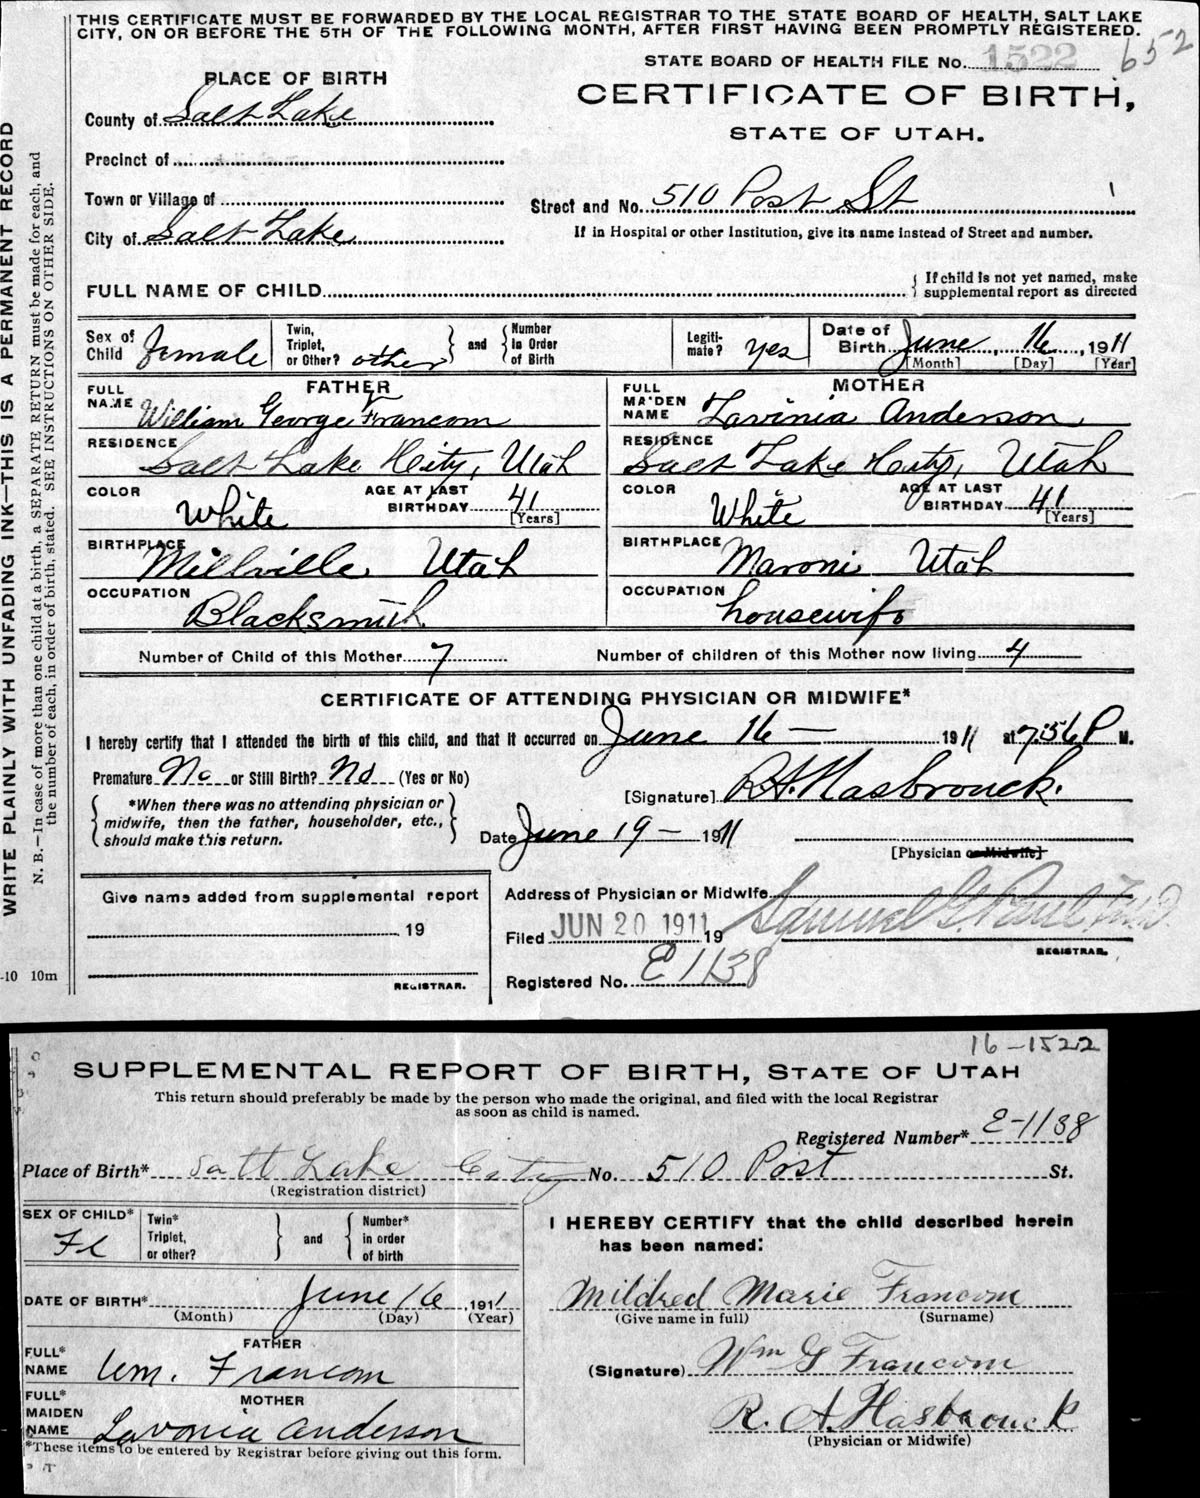 THIS CERTIFICATE MUST BE FORWARDED BY THE LOCAL REGISTRAR TO THE STATE BOARD OF HEALTH, SALT LAKE
CITY, ON OR BEFORE THE 5TH OF THE FOLLOWING MONTH, AFTER FIRST HAVING BEEN PROMPTLY REGISTERED.
STATE BOARD OF HEALTH FILE No. 1522 652
PLACE OF BIRTH
CERTIFICATE OF BIRTH,
STATE OF UTAH.
County of Salt Lake
Precinct of
Town or Village of
Street and No. 510 Post St
City of Salt Lake
If in Hospital or other Institution, give its name instead of Street and number.
FULL NAME OF CHILD
{ If child is not yet named, make
supplemental report as directed
Sex of Child female
Twin, Triplet, or Other? other } and { Number in Order of Birth
Legiti-mate? yes
Date of Birth June 16, 1911
[Month] [Day] [Year]
FATHER
FULL NAME William George Francom
RESIDENCE Salt Lake City, Utah
COLOR White AGE AT LAST BIRTHDAY 41 [Years]
BIRTHPLACE Millville Utah
OCCUPATION Blacksmith
MOTHER
FULL MAIDEN NAME Lavinia Anderson
RESIDENCE Salt Lake City, Utah
COLOR White AGE AT LAST BIRTHDAY 41 [Years]
BIRTHPLACE Maroni Utah
OCCUPATION housewife
Number of Child of this Mother 7 Number of children of this Mother now living 4
CERTIFICATE OF ATTENDING PHYSICIAN OR MIDWIFE*
I hereby certify that I attended the birth of this child, and that it occurred on June 16 — 1911 at 7:56 P M.
Premature No or Still Birth? No (Yes or No)
[Signature] R.A. Hasbrouck.
{ *When there was no attending physician or
midwife, then the father, householder, etc.,
should make this return. }
Date June 19 — 1911
[Physician or Midwife]
Give name added from supplemental report
19
REGISTRAR.
Address of Physician or Midwife
Filed JUN 20 1911 19 Samuel G. Paul M.D.
REGISTRAR.
Registered No. E1138
WRITE PLAINLY WITH UNFADING INK—THIS IS A PERMANENT RECORD
N. B.—In case of more than one child at a birth, a SEPARATE RETURN must be made for each, and
the number of each, in order of birth, stated. SEE INSTRUCTIONS ON OTHER SIDE.
-10 10m
16-1522
SUPPLEMENTAL REPORT OF BIRTH, STATE OF UTAH
This return should preferably be made by the person who made the original, and filed with the local Registrar
as soon as child is named.
Registered Number* E-1138
Place of Birth* Satt Lake City No. 510 Post St.
(Registration district)
SEX OF CHILD* Fl
Twin* Triplet, or other? } and { Number* in order of birth
DATE OF BIRTH* June 16, 1911
(Month) (Day) (Year)
FATHER
FULL* NAME Wm. Francom
MOTHER
FULL* MAIDEN NAME Lavonia Anderson
*These items to be entered by Registrar before giving out this form.
I HEREBY CERTIFY that the child described herein
has been named:
Mildred Marie Francom
(Give name in full) (Surname)
(Signature) Wm G Francom
R. A. Hasbrouck
(Physician or Midwife)